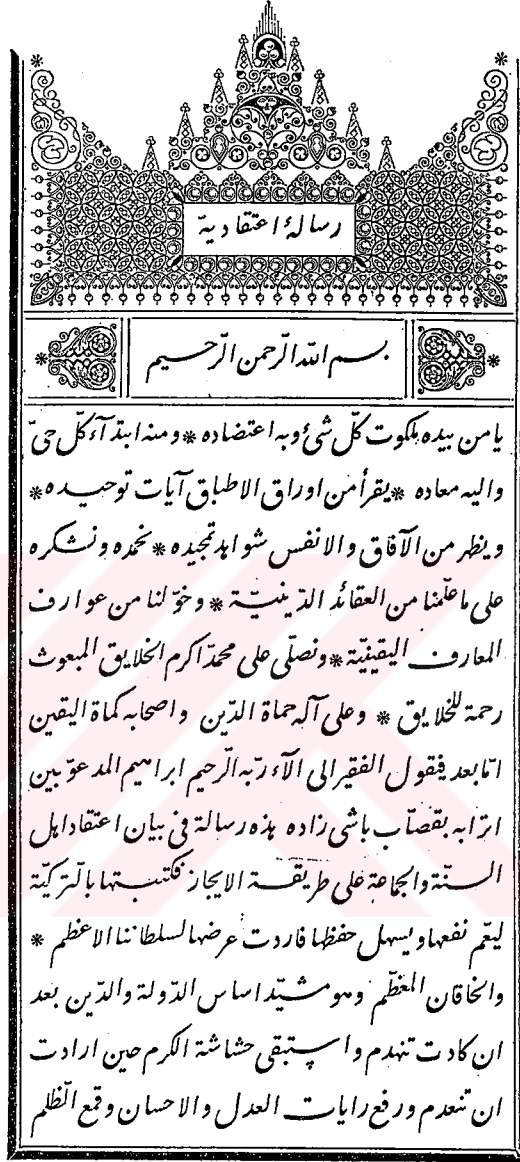 رسالۀ اعتقادیه
بسم اللّه الرّحمن الرّحیم
یامن بیده ملکوت کلّ شیٔ وبه اعتضاده * ومنه ابتدآء کلّ حیّ
والیه معاده * یقرأ من اوراق الاطباق آیات توحیده *
وینظر من الآفاق والانفس شواهد تمجیده * نحمده ونشکره
علی ما علّمنا من العقائد الدّینیّة * وخوّلنا من عوارف
المعارف الیقینیّة * ونصلّی علی محمّد اکرم الخلایق المبعوث
رحمة للخلایق * وعلی آله حماة الدّین واصحابه کماة الیقین
امّا بعد فیقول الفقیر الی الآء ربّه الرّحیم ابراهیم المدعوّ بین
اترابه بقصّاب باشی زاده هذه رسالة فی بیان اعتقاد اهل
السنّة والجماعة علی طریقة الایجاز فکتبتها بالترکیّة
لیعمّ نفعها ویسهل حفظها فاردت عرضها لسلطاننا الاعظم *
والخاقان المعظّم وهو مشیّد اساس الدّولة والدّین بعد
ان کادت تنهدم واستبقی حشاشة الکرم حین ارادت
ان تنعدم ورفع رایات العدل والاحسان وقمع الظّلم